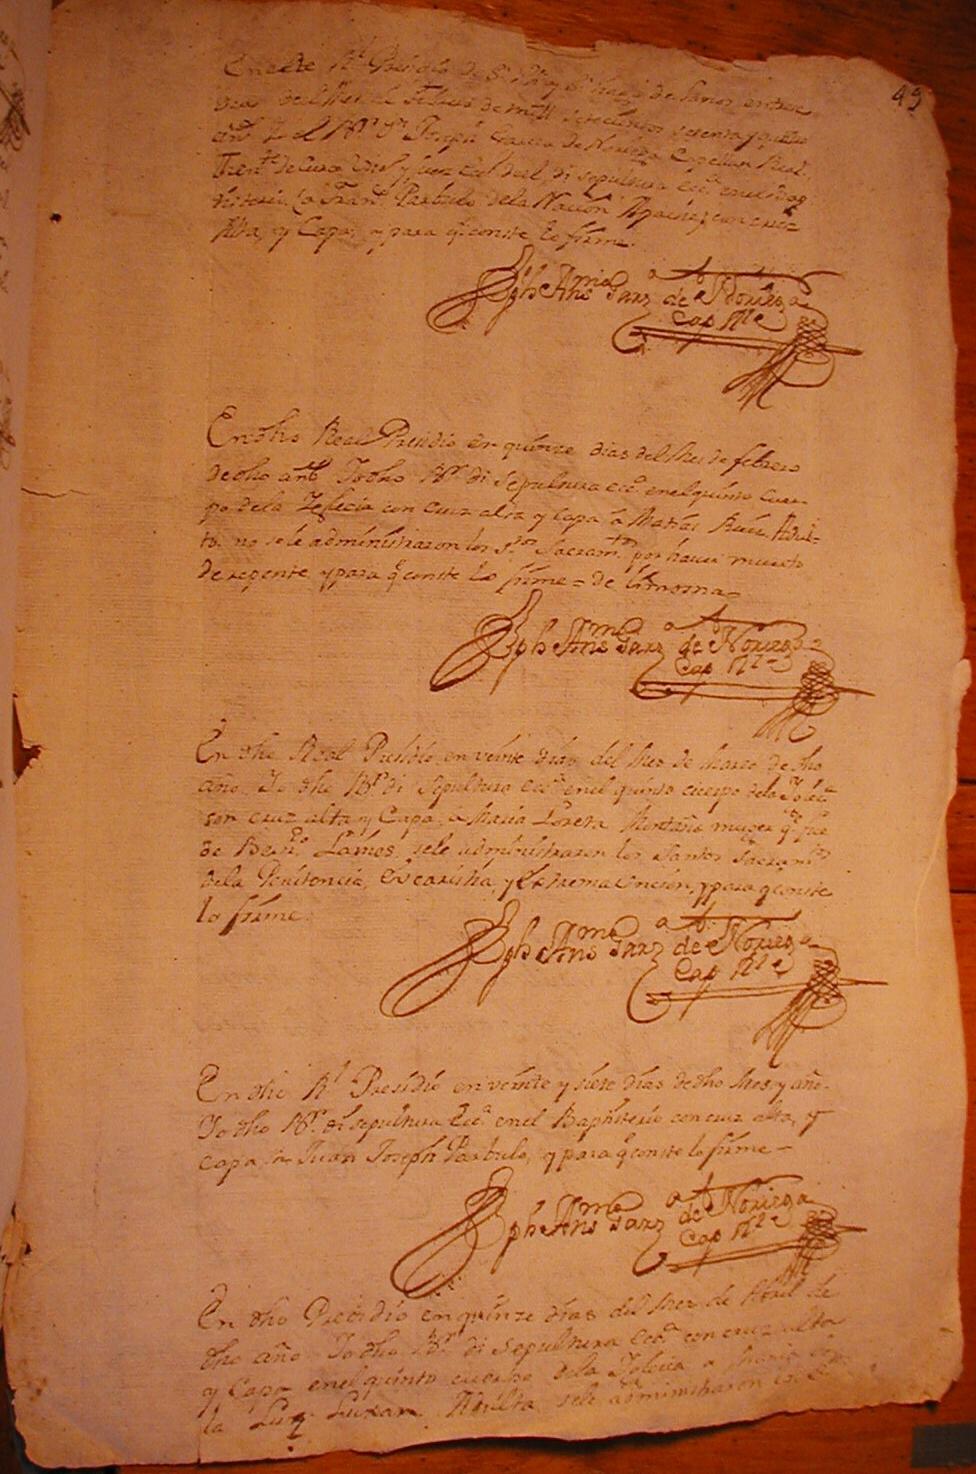 49
En este Rl Presidio de Sn Phe y Sntiago de Janos, en trece
dias del Mes de Febrero de mill setecientos setenta y quatro
añs Yo el Br Dn Joseph Garcia de Noriega Capellan Real,
Thente de Cura Vico y Juez Ecco di sepultura ecca en el Bap
tisterio Franco Parbulo de la Nacion Apache, con cruz
Alta, y Capa, y para qe conste lo firme.
Jph Anto Garza de Noriega
Cap Rle
En dho Real Presidio en quinze dias del Mes de febrero
de dho añs Yo dho Br di Sepultura ecca en el quinto cuer-
po de la Yglecia con cruz alta y Capa a Matias Ruis, Adul-
to. no se le administraron los Stos Sacramtos por haver muerto
derepente, y para qe conste lo firme = de limosna =
Jph Anto Garza de Noriega
Cap Rle
En dho Real Presidio, en veinte dias del Mes de Marzo de dho
año Yo dho Br di Sepultura ecca en el quinto cuerpo de la Yglecia
con cruz alta y Capa, a Maria Loreta Montaño muger qe fue
de Berno Lamos, se le administraron los Santos Sacramtos
de la Penitencia, Eucaristia, y Extrema Uncion, y para qe conste
lo firme.
Jph Anto Garza de Noriega
Cap Rle
En dho Rl Presidio en veinte y siete dias de dho Mes y año.
Yo dho Br di sepultura Ecca en el Baphisterio con cruz alta, y
Capa, a Juan Joseph Parbulo, y para qe conste lo firme =
Jph Anto Garza de Noriega
Cap Rle
En dho Presidio en quinze dias del Mes de Abril de
dho año Yo dho Br di sepultura ecca con cruz alta
y Capa en el quinto cuerpo de la Yglecia a Maria
la Luz Luxan Adulta, se le administraron los